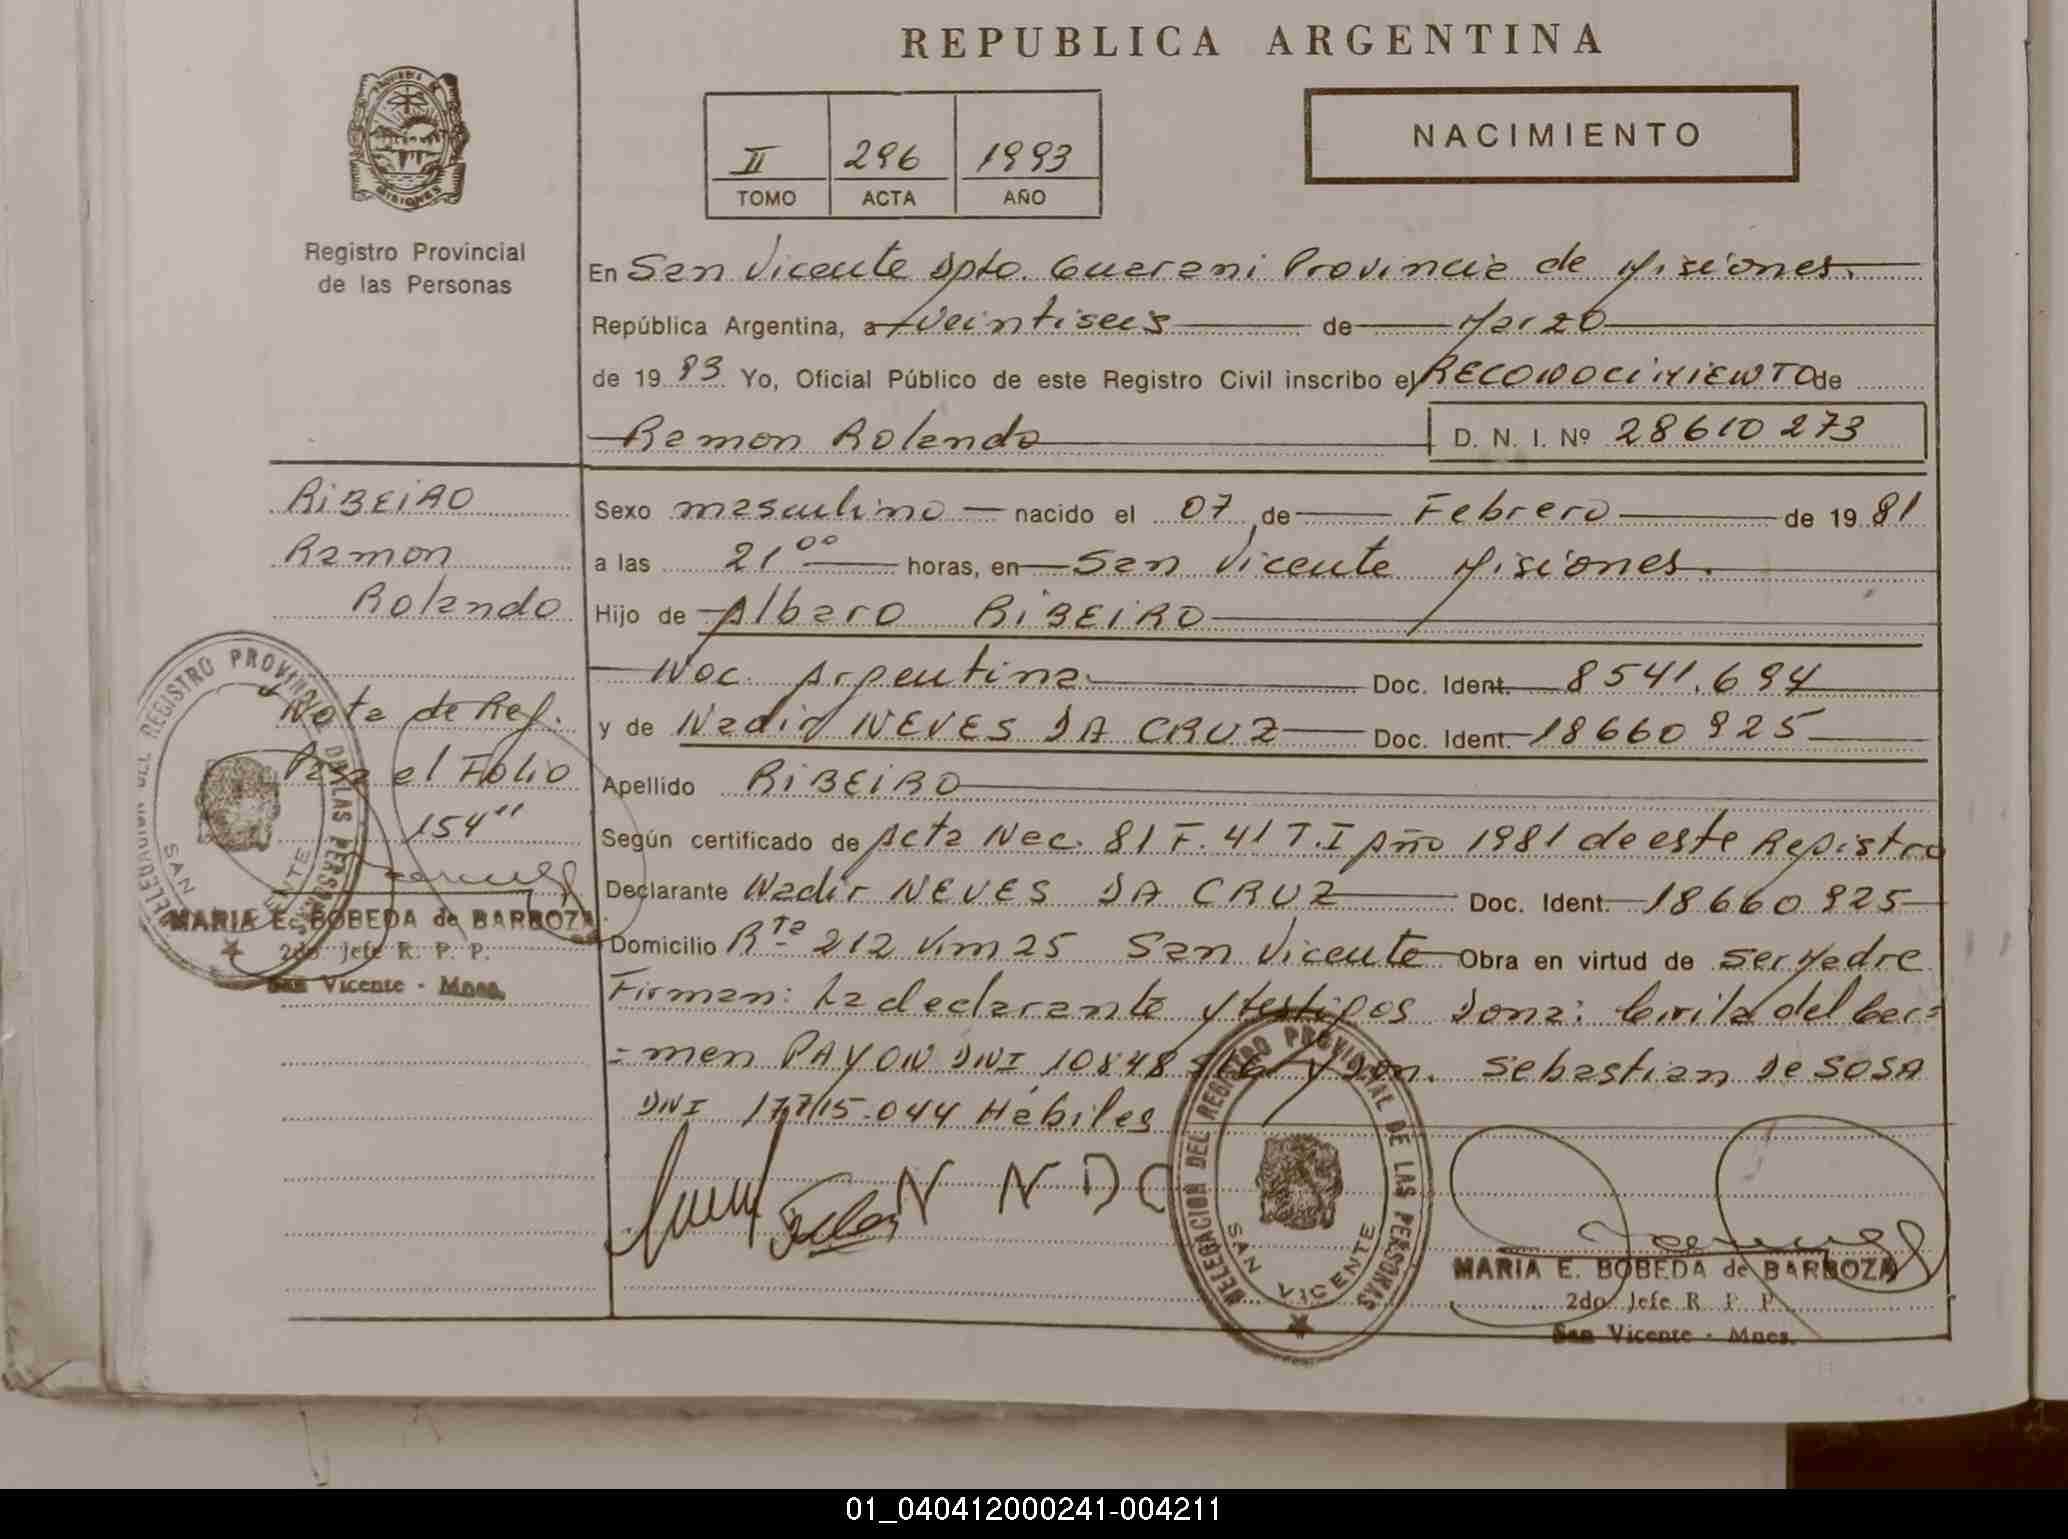 REPUBLICA ARGENTINA
NACIMIENTO
II 296 1993
TOMO ACTA AÑO
MISIONES
Registro Provincial
de las Personas
En San Vicente Dpto. Guarani Provincia de Misiones.
República Argentina, a veintiseis de Marzo
de 19 93 Yo, Oficial Público de este Registro Civil inscribo el RECONOCIMIENTO de
Ramon Rolando D. N. I. Nº 28610273
RIBEIRO
Ramon
Rolando
Sexo masculino nacido el 07 de Febrero de 19 81
a las 21⁰⁰ horas, en San Vicente Misiones.
Hijo de Albaro RIBEIRO
Nac. Argentina Doc. Ident. 8541.694
y de Nadir NEVES DA CRUZ Doc. Ident. 18660925
Apellido RIBEIRO
Según certificado de Acta Nac. 81 F. 41 T.I Año 1981 de este Registro
Declarante Nadir NEVES DA CRUZ Doc. Ident. 18660925
Domicilio Rta 212 Km 25 San Vicente Obra en virtud de ser Madre
Firman: La declarante y testigos Dona: Cirila del Car=
=men PAYON DNI 10848516 y Don. Sebastian De SOSA
DNI 17715.044 Hábiles
Nota de Ref.
Pasa el Folio
154"
DELEGACION DEL REGISTRO PROVINCIAL DE LAS PERSONAS
SAN VICENTE
MARIA E. BOBEDA de BARBOZA
2do. Jefe R. P. P.
San Vicente - Mnes.
N N D C
DELEGACION DEL REGISTRO PROVINCIAL DE LAS PERSONAS
SAN VICENTE
MARIA E. BOBEDA de BARBOZA
2do. Jefe R. P. P.
San Vicente - Mnes.
01_040412000241-004211